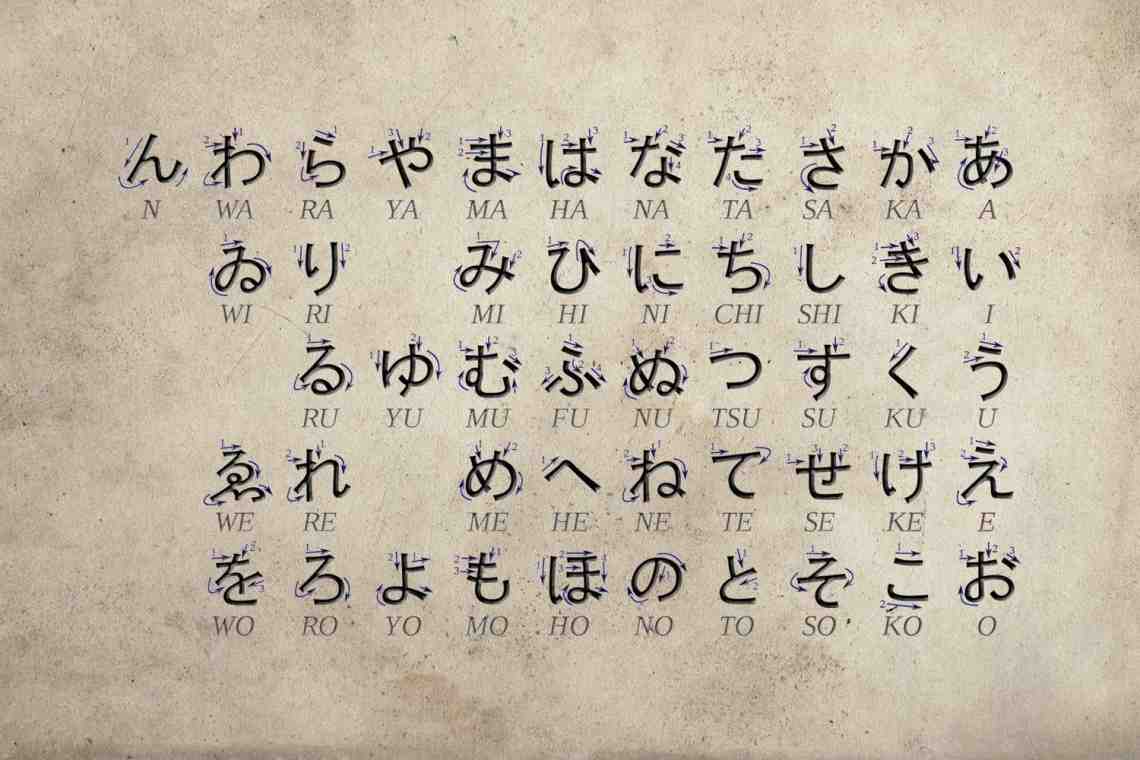 んわらやまはなたさかあ
N WA RA YA MA HA NA TA SA KA A
ゐりみひにちしきい
WI RI MI HI NI CHI SHI KI I
るゆむふぬつすくう
RU YU MU FU NU TSU SU KU U
ゑれめへねてせけえ
WE RE ME HE NE TE SE KE E
をろよもほのとそこお
WO RO YO MO HO NO TO SO KO O